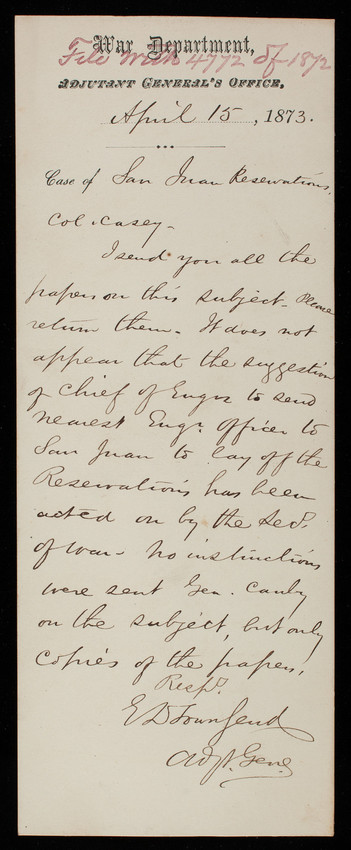 War Department,
File With 4772 of 1872
ADJUTANT GENERAL'S OFFICE,
April 15, 1873.
Case of San Juan Reservations.
Col. Casey -
I send you all the
papers on this subject. Please
return them. It does not
appear that the suggestion
of Chief of Engrs to send
nearest Engr. officer to
San Juan to lay off the
Reservations has been
acted on by the Secy.
of War - No instructions
were sent Gen. Canby
on the subject, but only
copies of the papers.
Respy.
E D Townsend
Adjt. Genl.